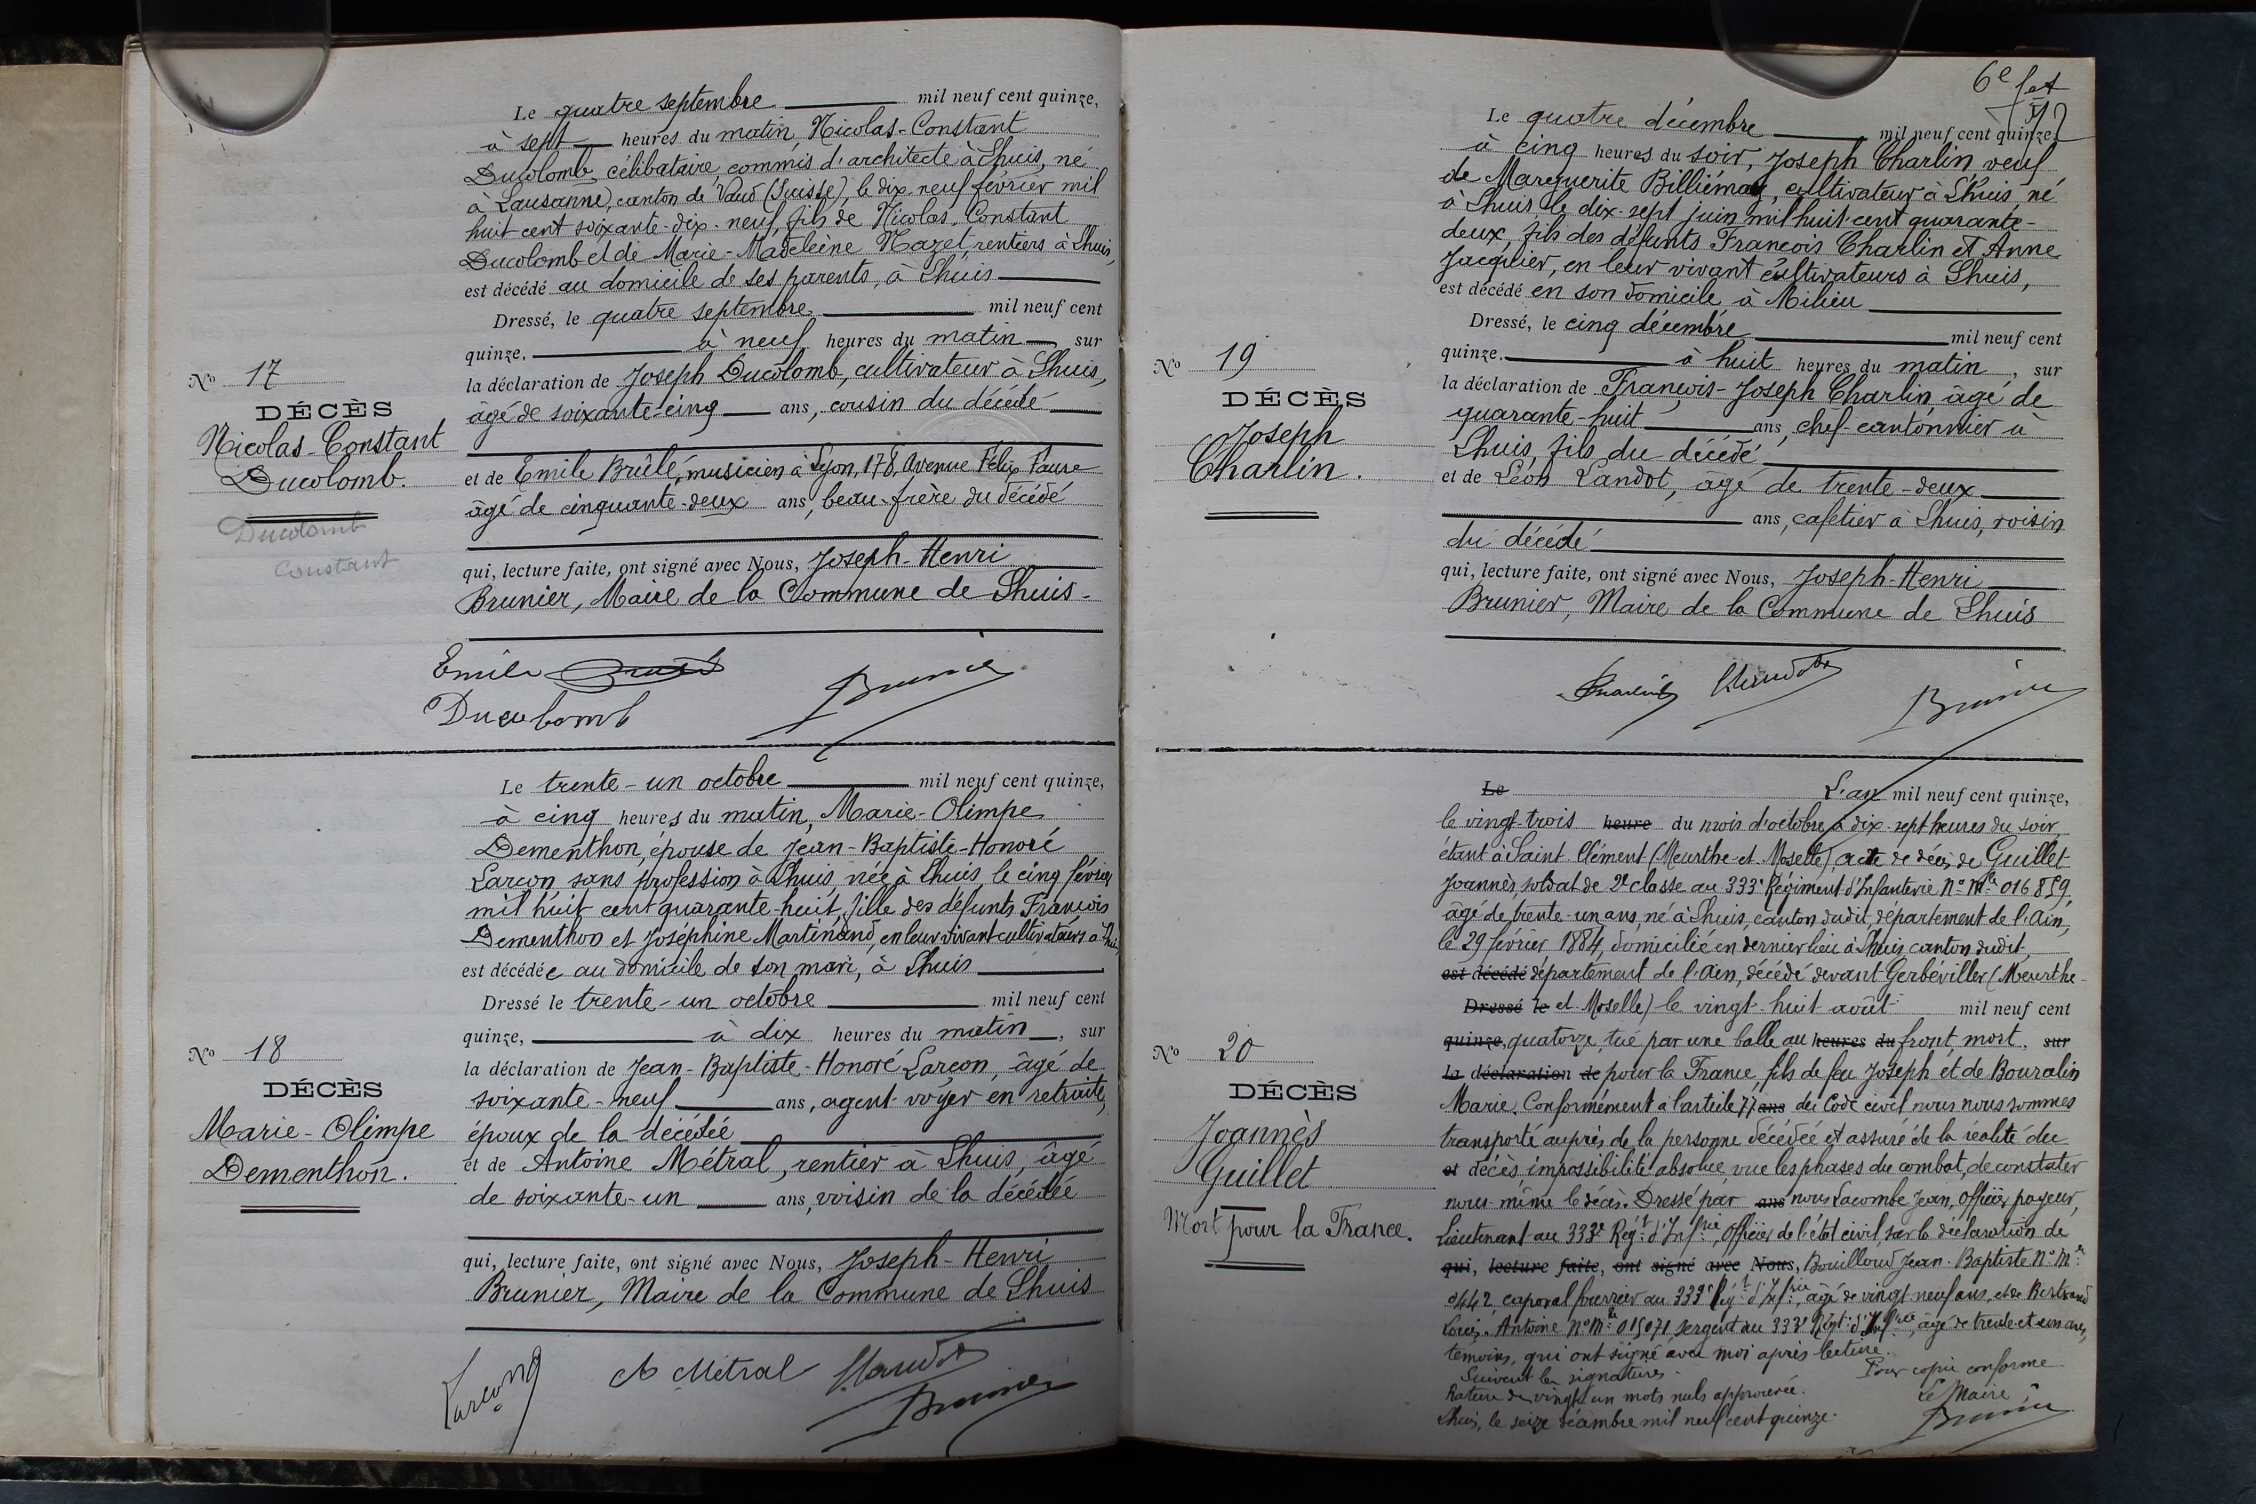 Le quatre septembre mil neuf cent quinze,
à sept heures du matin, Nicolas-Constant
Ducolomb, célibataire, commis d'architecte à Lhuis, né
à Lausanne, canton de Vaud (Suisse), le dix-neuf février mil
huit cent soixante-dix-neuf, fils de Nicolas-Constant
Ducolomb et de Marie-Madeleine Mazet, rentiers à Lhuis,
est décédé au domicile de ses parents, à Lhuis
Dressé, le quatre septembre mil neuf cent
quinze, à neuf heures du matin, sur
la déclaration de Joseph Ducolomb, cultivateur à Lhuis,
âgé de soixante-cinq ans, cousin du décédé
et de Emile Brûlé, musicien à Lyon, 178, Avenue Félix Faure
âgé de cinquante-deux ans, beau-frère du décédé
qui, lecture faite, ont signé avec Nous, Joseph-Henri
Brunier, Maire de la Commune de Lhuis-
No 17
DÉCÈS
Nicolas-Constant
Ducolomb.
Ducolomb
Constant
Emile
Ducolomb Brunier
Le trente-un octobre mil neuf cent quinze,
à cinq heures du matin, Marie-Olimpe
Dementhon, épouse de Jean-Baptiste-Honoré
Larçon, sans profession à Lhuis, née à Lhuis, le cinq février
mil huit cent quarante-huit, fille des défunts François
Dementhon et Joséphine Martinand, en leur vivant cultivateurs à Lhuis,
est décédée au domicile de son mari, à Lhuis
Dressé le trente-un octobre mil neuf cent
quinze, à dix heures du matin, sur
la déclaration de Jean-Baptiste-Honoré Larçon, âgé de
soixante-neuf ans, agent-voyer en retraite,
époux de la décédée
et de Antoine Métral, rentier à Lhuis, âgé
de soixante-un ans, voisin de la décédée
qui, lecture faite, ont signé avec Nous, Joseph-Henri
Brunier, Maire de la Commune de Lhuis
No 18
DÉCÈS
Marie-Olimpe
Dementhon.
Larçon A Métral Brunier
6e
Le quatre décembre mil neuf cent quinze,
à cinq heures du soir, Joseph Charlin, veuf
de Marguerite Billiémaz, cultivateur à Lhuis, né
à Lhuis, le dix-sept juin mil huit cent quarante-
deux, fils des défunts François Charlin et Anne
Jacquier, en leur vivant cultivateurs à Lhuis,
est décédé en son domicile à Milieu
Dressé, le cinq décembre mil neuf cent
quinze. à huit heures du matin, sur
la déclaration de François-Joseph Charlin, âgé de
quarante-huit ans, chef-cantonnier à
Lhuis, fils du décédé
et de Léon Landot, âgé de trente-deux
ans, cafetier à Lhuis, voisin
du décédé
qui, lecture faite, ont signé avec Nous, Joseph-Henri
Brunier, Maire de la Commune de Lhuis
No 19
DÉCÈS
Joseph
Charlin.
Charlin Brunier
Le L'an mil neuf cent quinze,
le vingt-trois heure du mois d'octobre à dix-sept heures du soir,
étant à Saint Clément (Meurthe-et-Moselle), acte de décès de Guillet
Joannès, soldat de 2e classe au 333e Régiment d'Infanterie No Mle 016859,
âgé de trente-un ans, né à Lhuis, canton dudit, département de l'Ain,
le 29 février 1884, domicilié en dernier lieu à Lhuis canton dudit,
est décédé département de l'Ain, décédé devant Gerbéviller (Meurthe-
Dressé le et Moselle) le vingt-huit août mil neuf cent
quinze, quatorze, tué par une balle au heures du front, mort. sur
la déclaration de pour la France, fils de feu Joseph et de Bouralin
Marie. Conformément à l'article 77 ans du Code civil nous nous sommes
transporté auprès de la personne décédée et assuré de la réalité du
et décès, impossibilité absolue, vue les phases du combat, de constater
nous-même le décès. Dressé par ans nous Lacombe Jean, Officier payeur,
Lieutenant au 333e Régt d'Infrie, Officier de l'état civil, sur la déclaration de
qui, lecture faite, ont signé avec Nous, Bouilloud Jean-Baptiste No Mle
0442, caporal fourrier au 333e Régt d'Infrie, âgé de vingt neuf ans, et de Bertrand
Louis-Antoine No Mle 015071, sergent au 333e Régt d'Infrie, âgé de trente et un ans,
témoins, qui ont signé avec moi après lecture.
Suivent les signatures. Pour copie conforme
Rature de vingt un mots nuls approuvée. Le Maire,
Lhuis, le seize décembre mil neuf cent quinze. Brunier
No 20
DÉCÈS
Joannès
Guillet
Mort pour la France.